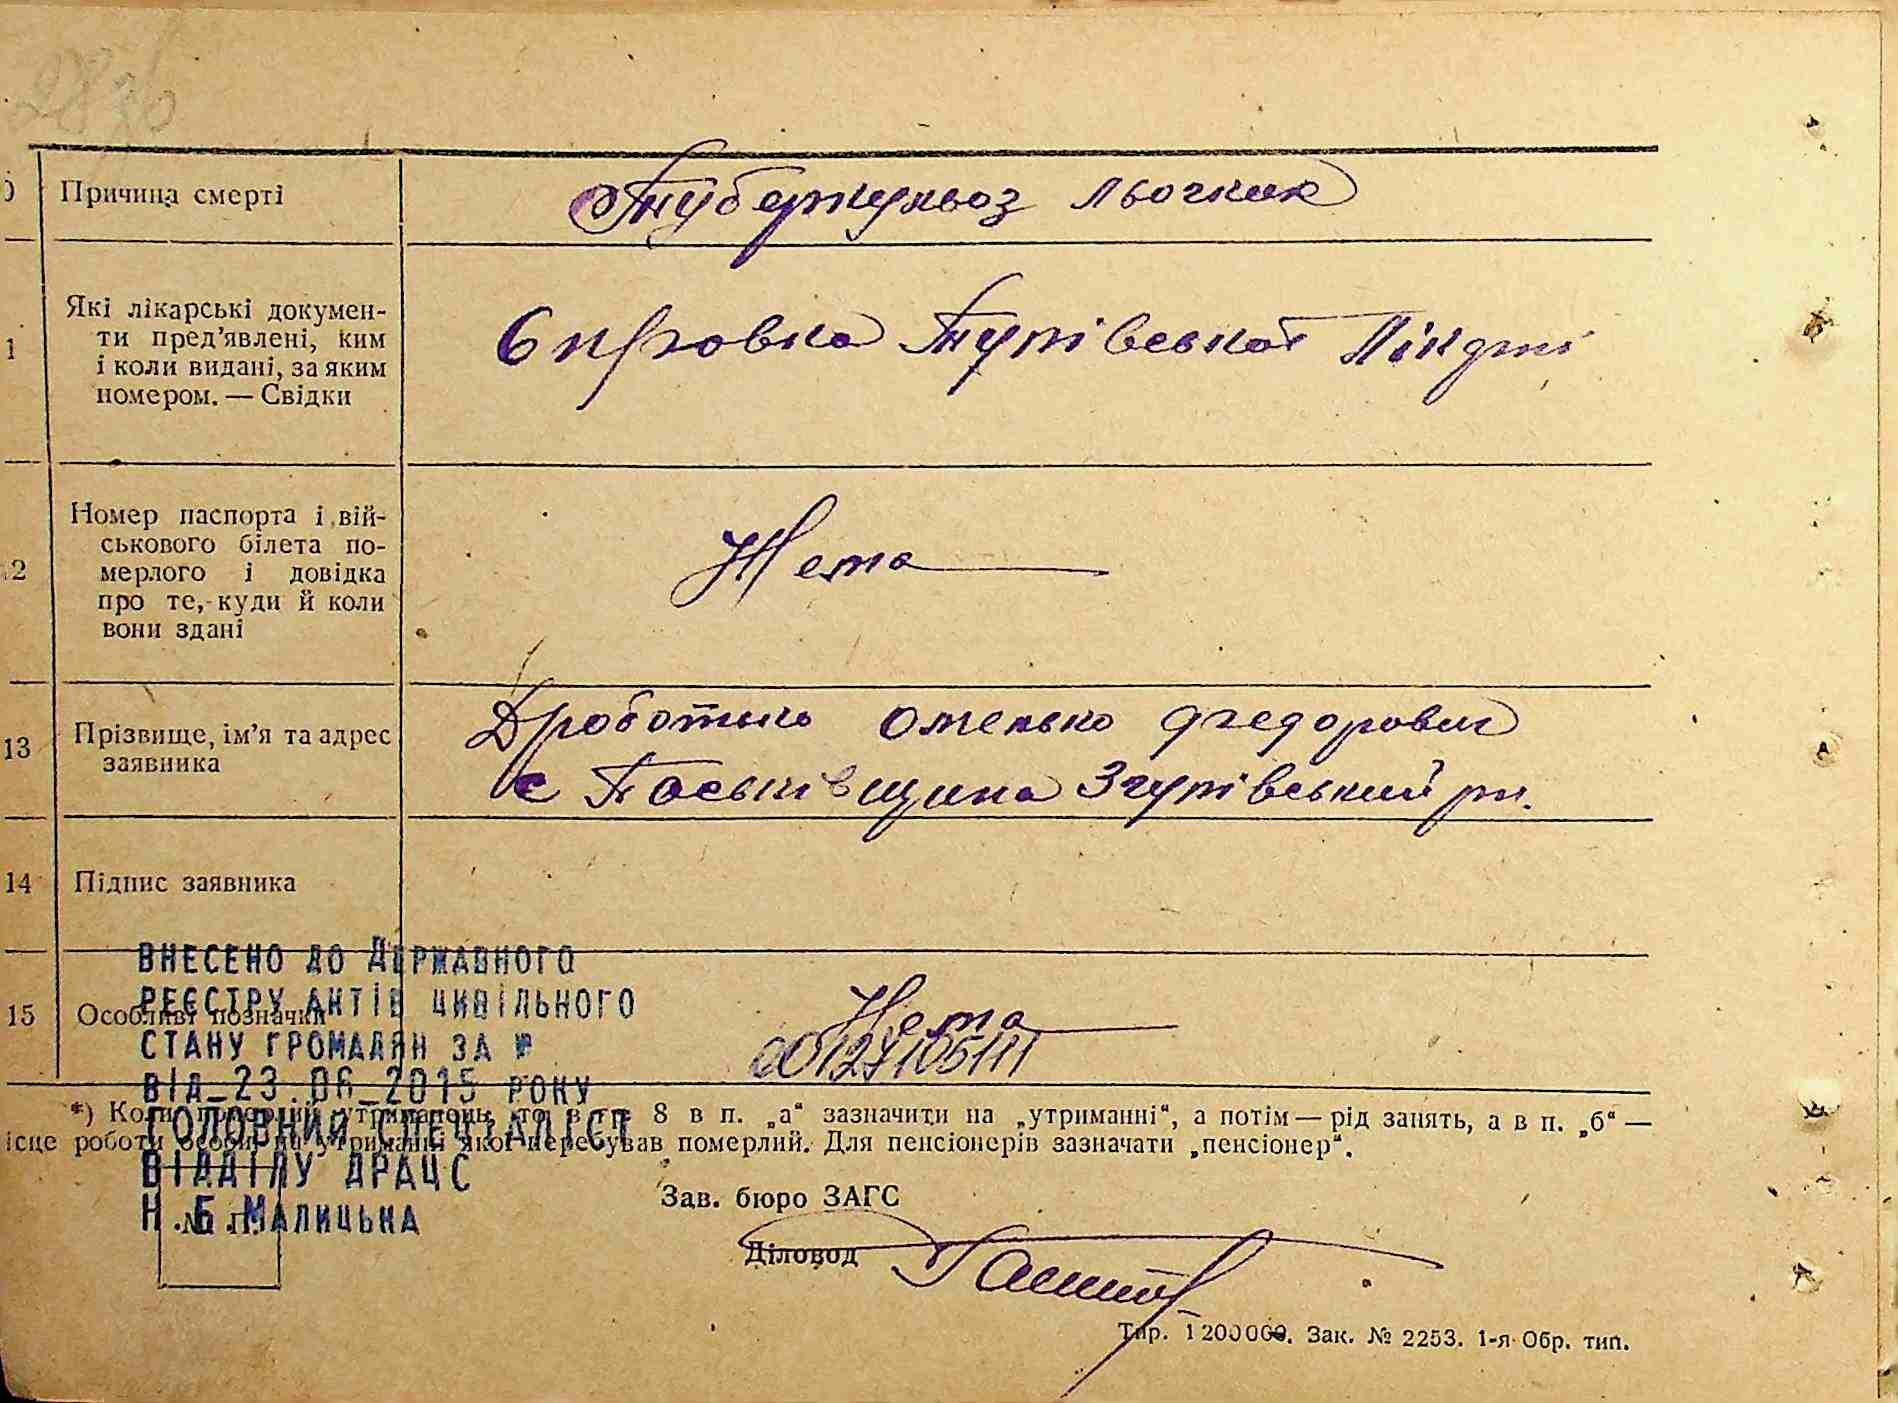 Причина смерті
Туберкульоз льогких
1
Які лікарські докумен-
ти пред’явлені, ким
і коли видані, за яким
номером. — Свідки
Справка Турівської Лікдні
2
Номер паспорта і вій-
ськового білета по-
мерлого і довідка
про те, куди й коли
вони здані
Нема
13
Прізвище, ім’я та адрес
заявника
Дроботько Федорович
с Пасківщина Згурівський рн.
14
Підпис заявника
15
Особливі позначки
Нема
00127105111
ВНЕСЕНО ДО ДЕРЖАВНОГО
РЕЄСТРУ АКТІВ ЦИВІЛЬНОГО
СТАНУ ГРОМАДЯН ЗА №
ВІД_23.06_2015 РОКУ
ГОЛОВНИЙ СПЕЦІАЛІСТ
ВІДДІЛУ ДРАЦС
Н.Б.МАЛИЦЬКА
*) Коли то в гр. 8 в п. „а“ зазначити на „утриманні“, а потім — рід занять, а в п. „б“ —
ісце роботи особи, на утриманні якої перебував померлий. Для пенсіонерів зазначати „пенсіонер“.
Зав. бюро ЗАГС
Діловод
Тир. 1200000. Зак. № 2253. 1-я Обр. тип.